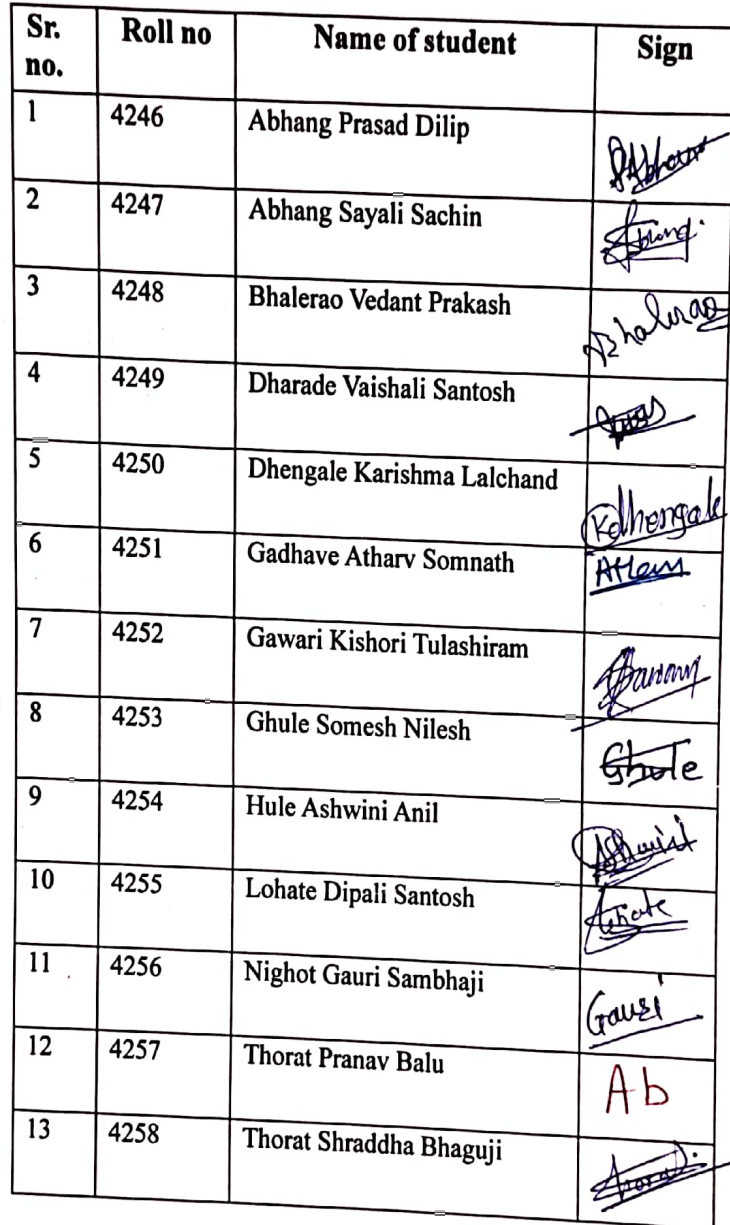 Sr. no. Roll no Name of student Sign
1 4246 Abhang Prasad Dilip
2 4247 Abhang Sayali Sachin
3 4248 Bhalerao Vedant Prakash Bhalerao
4 4249 Dharade Vaishali Santosh
5 4250 Dhengale Karishma Lalchand Kdhengale
6 4251 Gadhave Atharv Somnath
7 4252 Gawari Kishori Tulashiram
8 4253 Ghule Somesh Nilesh Ghule
9 4254 Hule Ashwini Anil
10 4255 Lohate Dipali Santosh
11 4256 Nighot Gauri Sambhaji Gauri
12 4257 Thorat Pranav Balu Ab
13 4258 Thorat Shraddha Bhaguji